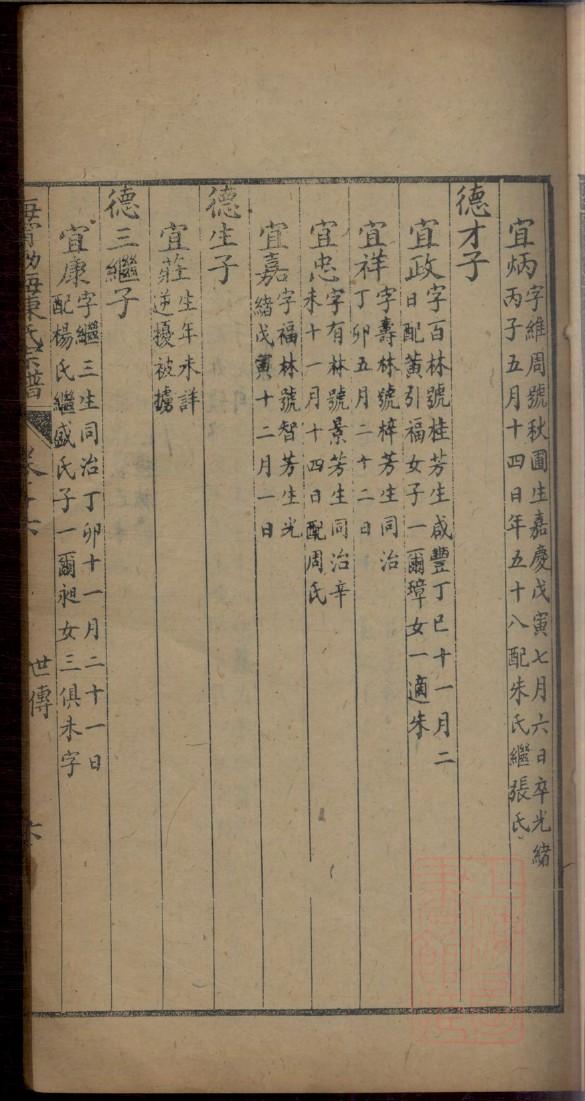 宜炳字維周號秋圃生嘉慶戊寅七月六日卒光緒
丙子五月十四日年五十八配朱氏繼張氏
德才子
宜政字百林號桂芳生咸豐丁巳十一月二
日配黃引福女子一爾璋女一適朱
宜祥字壽林號梓芳生同治
丁卯五月二十二日
宜忠字有林號景芳生同治辛
未十一月十四日配周氏
宜嘉字福林號智芳生光
緒戊寅十二月一日
德生子
宜莊生年未詳
逆擾被擄
德三繼子
宜康字繼三生同治丁卯十一月二十一日
配楊氏繼盛氏子一爾昶女三俱未字
海陳氏宗譜
世傳